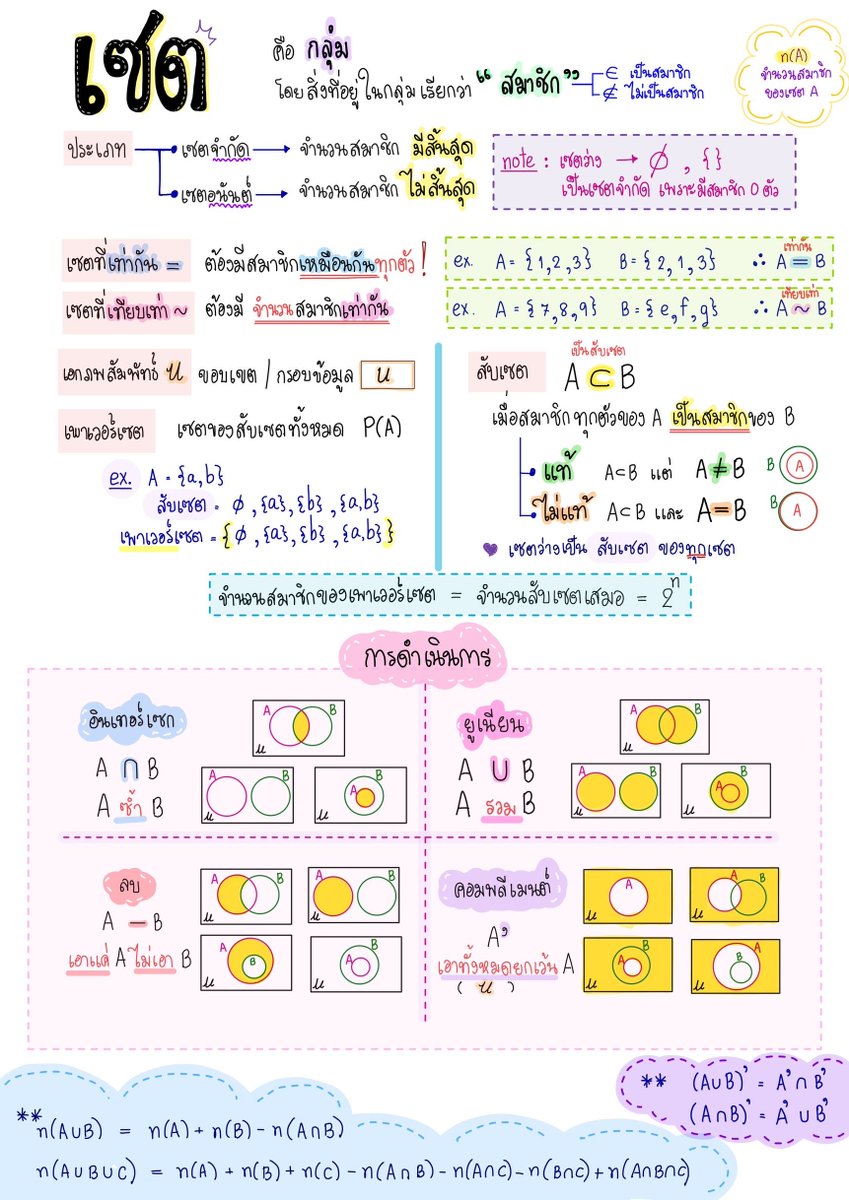 เซต
คือ กลุ่ม
โดยสิ่งที่อยู่ในกลุ่มเรียกว่า “สมาชิก”
∈ เป็นสมาชิก
∉ ไม่เป็นสมาชิก
n(A)
จำนวนสมาชิก
ของเซต A
ประเภท
เซตจำกัด → จำนวนสมาชิก มีสิ้นสุด
เซตอนันต์ → จำนวนสมาชิก ไม่สิ้นสุด
note : เซตว่าง → ∅ , { }
เป็นเซตจำกัด เพราะมีสมาชิก 0 ตัว
เซตที่เท่ากัน = ต้องมีสมาชิกเหมือนกันทุกตัว!
ex. A = {1,2,3} B = {2,1,3} ∴ A = B
เท่ากัน
เซตที่เทียบเท่า ~ ต้องมี จำนวนสมาชิกเท่ากัน
ex. A = {7,8,9} B = {e,f,g} ∴ A ~ B
เทียบเท่า
เอกภพสัมพัทธ์ U ขอบเขต / กรอบข้อมูล U
เพาเวอร์เซต เซตของสับเซตทั้งหมด P(A)
ex. A = {a,b}
สับเซต = ∅ , {a} , {b} , {a,b}
เพาเวอร์เซต = { ∅ , {a} , {b} , {a,b} }
สับเซต A ⊂ B
เป็นสับเซต
เมื่อสมาชิกทุกตัวของ A เป็นสมาชิกของ B
แท้ A⊂B แต่ A ≠ B B A
ไม่แท้ A⊂B และ A = B B A
เซตว่างเป็น สับเซต ของทุกเซต
จำนวนสมาชิกของเพาเวอร์เซต = จำนวนสับเซตเสมอ = 2ⁿ
การดำเนินการ
อินเทอร์เซก
A ∩ B
A ซ้ำ B
A B U
A B U
A B U
ยูเนียน
A ∪ B
A รวม B
A B U
A B U
A B U
ลบ
A − B
เอาแค่ A ไม่เอา B
A B U
A B U
A B U
A B U
คอมพลีเมนต์
A'
เอาทั้งหมดยกเว้น A
( U )
A U
A B U
A B U
A B U
** (A∪B)' = A' ∩ B'
(A∩B)' = A' ∪ B'
** n(A∪B) = n(A) + n(B) - n(A∩B)
n(A∪B∪C) = n(A) + n(B) + n(C) - n(A∩B) - n(A∩C) - n(B∩C) + n(A∩B∩C)